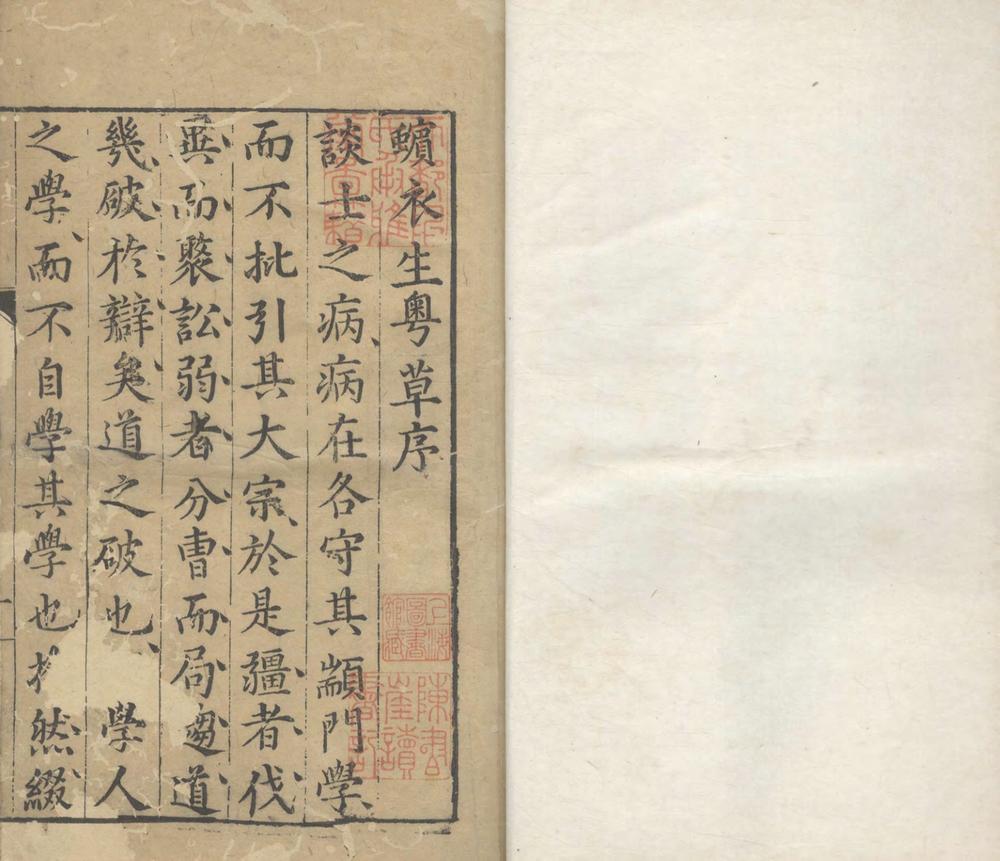 蠙衣生粤草序
談士之病病在各守其顓門學
而不批引其大宗於是疆者伐
異而聚訟弱者分曹而局趣道
幾破於辯矣道之破也學人
之學而不自學其學也 然綴